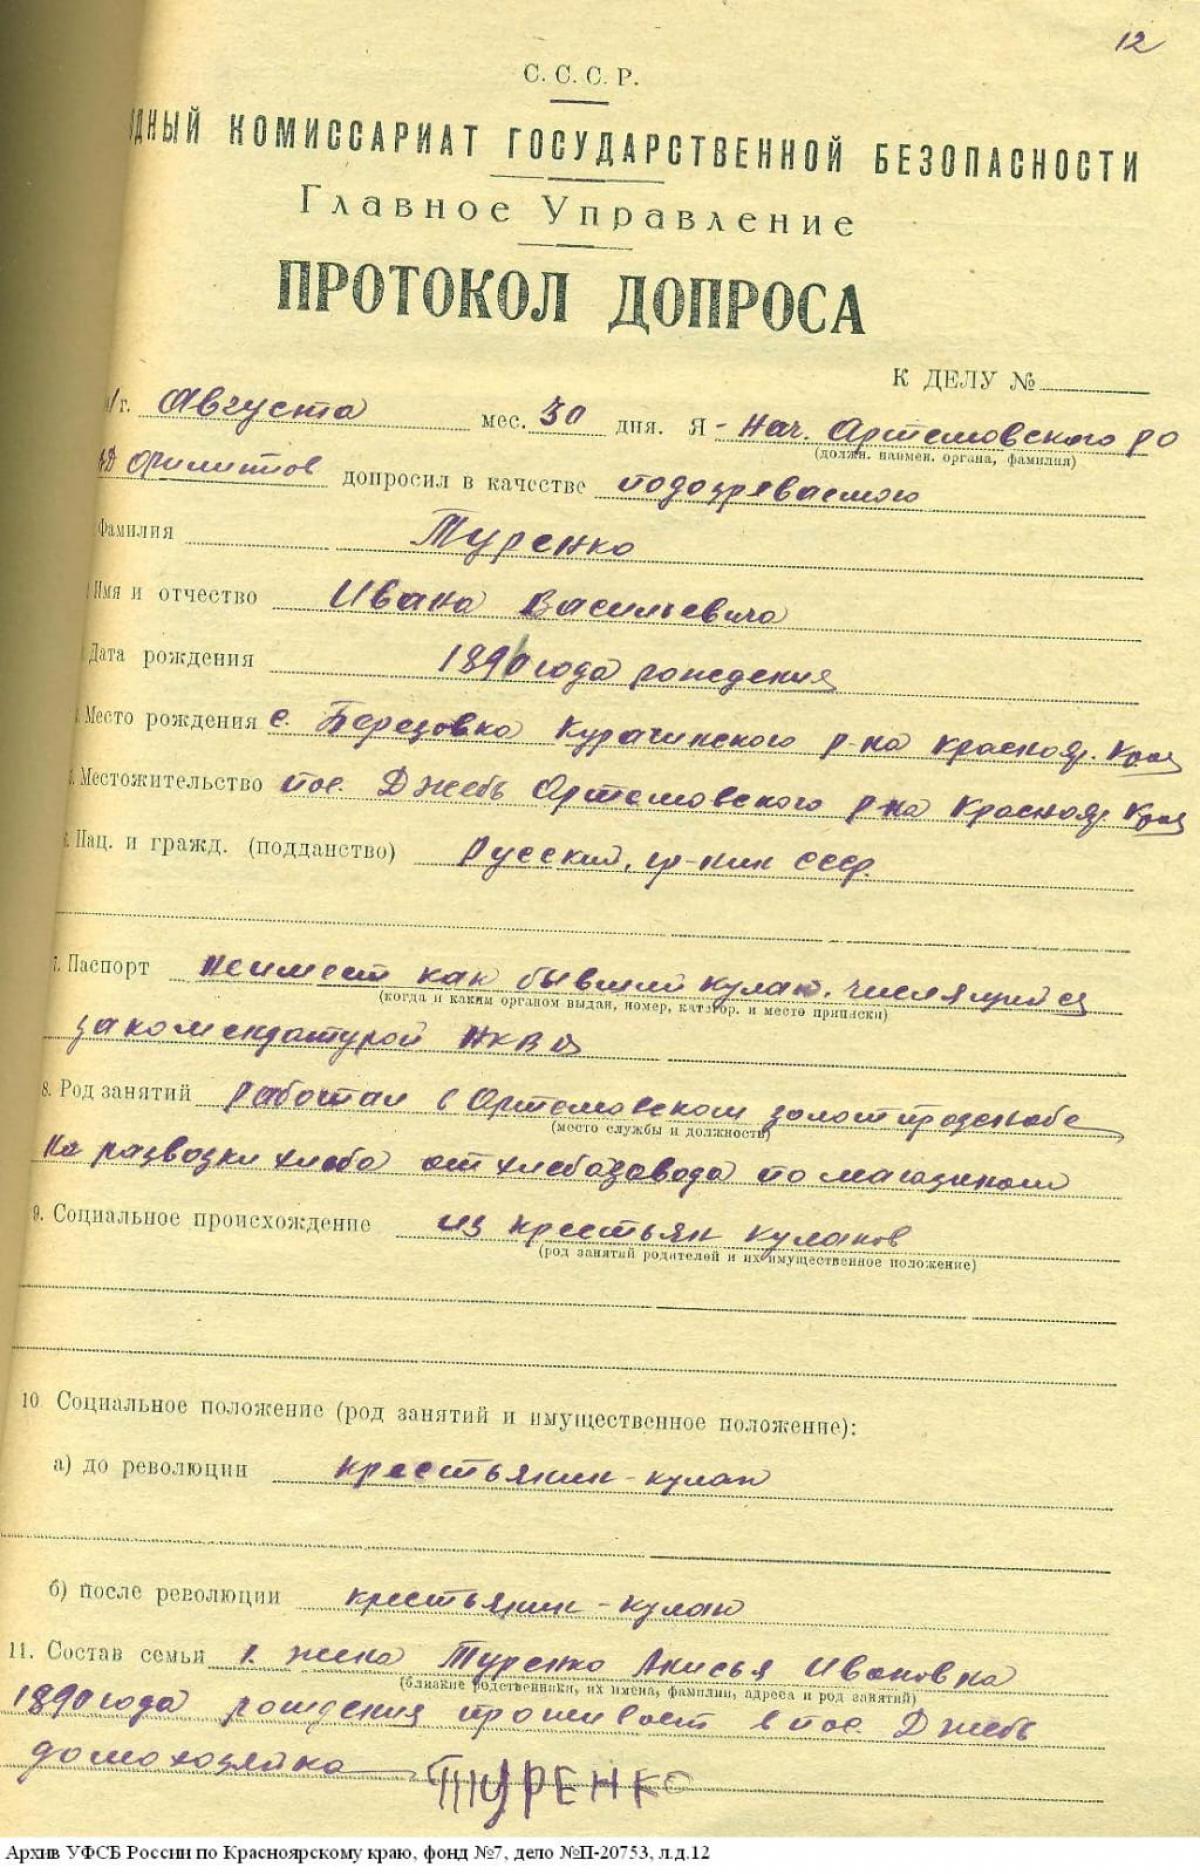 12
С. С. С. Р.
ДНЫЙ КОМИССАРИАТ ГОСУДАРСТВЕННОЙ БЕЗОПАСНОСТИ
Главное Управление
ПРОТОКОЛ ДОПРОСА
К ДЕЛУ №
г. Августа мес. 30 дня. Я - Нач. Артемовского РО
(должн. наимен. органа, фамилия)
Филиппов допросил в качестве подозреваемого
Фамилия Туренко
Имя и отчество Ивана Васильевича
Дата рождения 1890 года рождения
Место рождения с. Березовка Курагинского р-на Краснояр. Края
Местожительство пос. Джебь Артемовского р-на Краснояр. Края
Нац. и гражд. (подданство) Русский, гр-нин СССР.
7. Паспорт неимеет как бывший кулак, числящийся
(когда и каким органом выдан, номер, категор. и место приписки)
за комендатурой НКВД
8. Род занятий Работал в Артемовском золотпродснабе
(место службы и должность)
На развозки хлеба от хлебозавода по магазинам
9. Социальное происхождение из крестьян кулаков
(род занятий родителей и их имущественное положение)
10. Социальное положение (род занятий и имущественное положение):
а) до революции крестьянин-кулак
б) после революции крестьянин-кулак
11. Состав семьи 1. жена Туренко Анисья Ивановна
(близкие родственники, их имена, фамилии, адреса и род занятий)
1890 года рождения проживает в пос. Джебь
домохозяйка ТУРЕНКО
Архив УФСБ России по Красноярскому краю, фонд №7, дело №П-20753, л.д.12